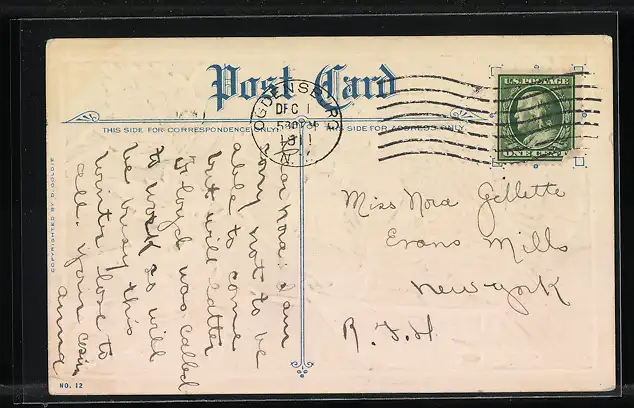 Post Card
THIS SIDE FOR CORRESPONDENCE ONLY. THIS SIDE FOR ADDRESS ONLY.
OGDENSBURG
DEC 1
530 PM
N.Y.
U.S. POSTAGE
ONE CENT
Dear Nora: I am
sorry not to be
able to come
but will later
Floyd was called
to work so will
be busy this
winter love to
all. your cousin
anna
Miss Nora Gillette
Evans Mills
New York
COPYRIGHTED BY D. GOLDIE
NO. 12